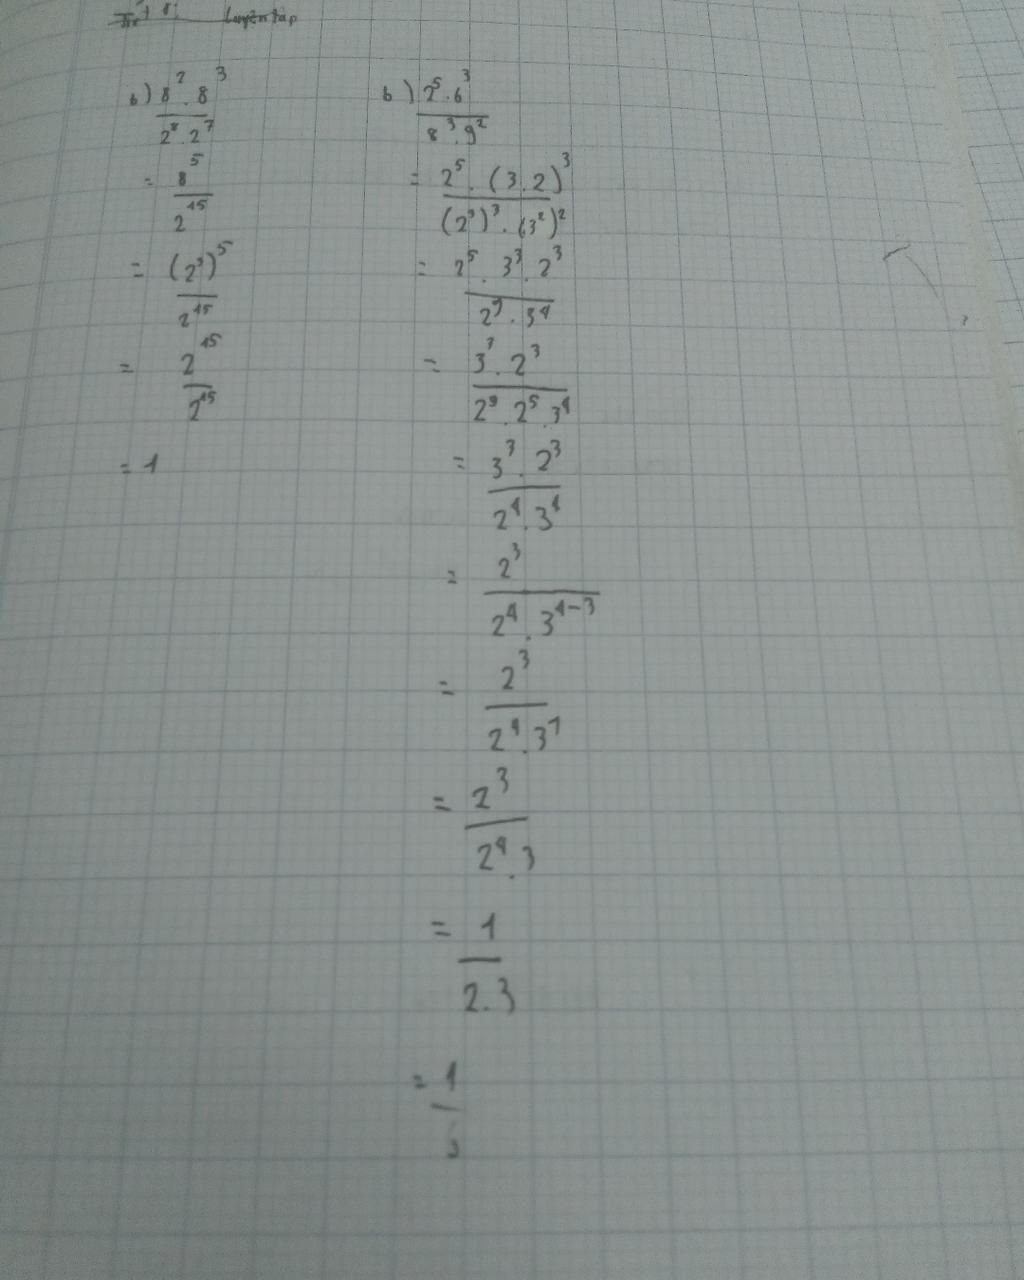 luyện tập
b) 8² . 8³ / 2⁸ . 2⁷
= 8⁵ / 2¹⁵
= (2³)⁵ / 2¹⁵
= 2¹⁵ / 2¹⁵
= 1
b) 2⁵ . 6³ / 8³ . 9²
= 2⁵ . (3.2)³ / (2³)³ . (3²)²
= 2⁵ . 3³ . 2³ / 2⁹ . 3⁴
= 3³ . 2³ / 2⁹ . 2⁵ . 3⁴
= 3³ . 2³ / 2⁴ . 3⁴
= 2³ / 2⁴ . 3⁴⁻³
= 2³ / 2⁴ . 3¹
= 2³ / 2⁴ . 3
= 1 / 2.3
= 1 /